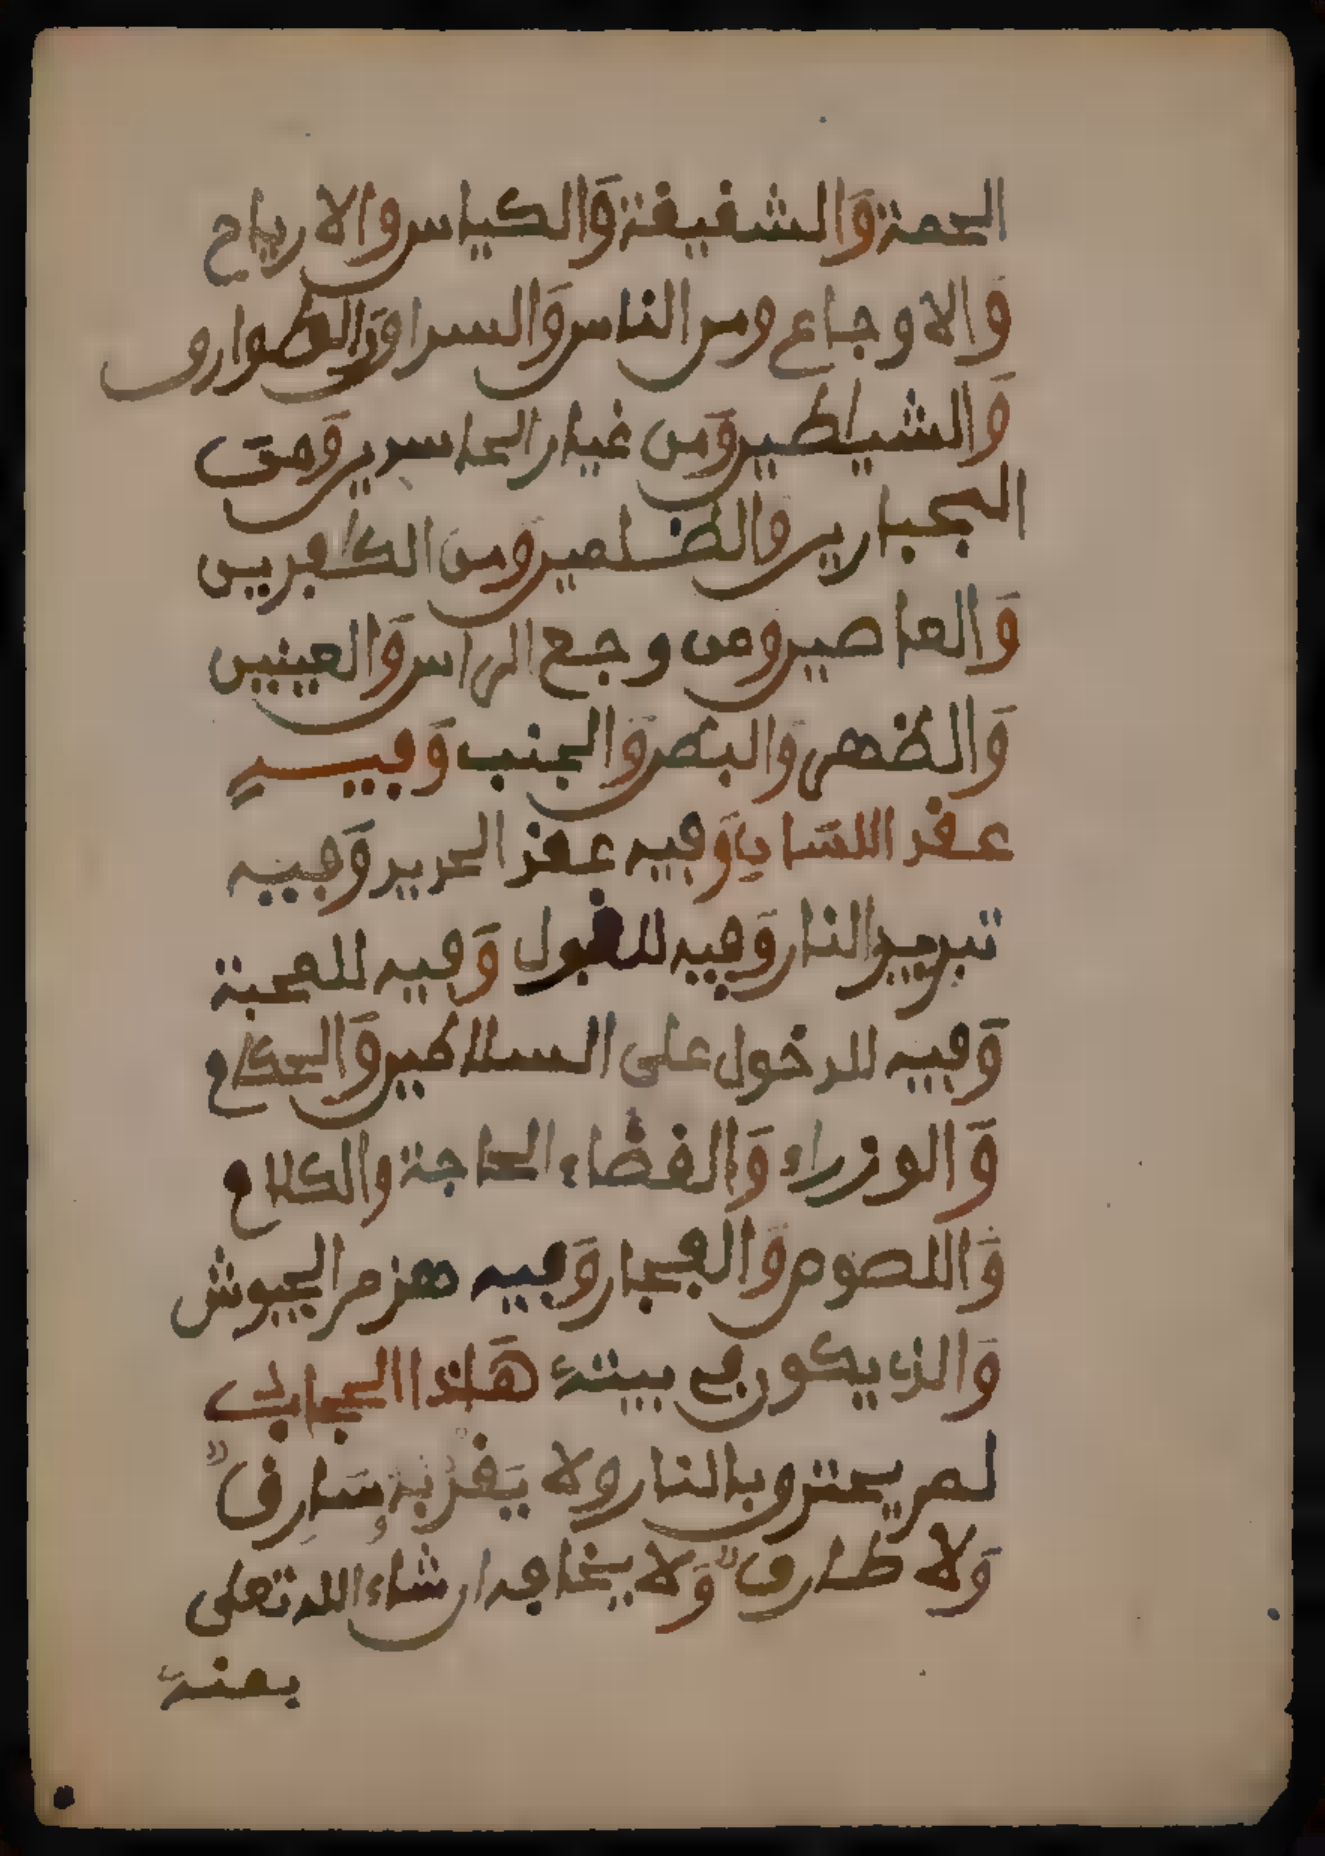 الحمة وَالشفيفة وَالكياس والارياح
وَالاوجاع ومن الناس وَالسراو وَالطوارق
وَالشيطين وَمن غيار الحاسرين وَمن
الجبارين والظلمين ومن الكفرين
وَالعاصين ومن وجع الراس وَالعينين
وَالظهر والبطن وَالجنب وَفيه
عفد اللسان وَفيه عفد الحرير وَفيه
تبريد النار وَفيه للفبول وَفيه للمحبة
وَفيه للدخول على السلاطين وَالحكام
وَالوزراء وَالفضاء الحاجة والكلام
وَاللصوص وَالفجار وَفيه هزم الجيوش
وَالذي يكون في بيته هَاذا الحجاب
لم يحترق بالنار ولا يَفربه سَارق
وَلا طارق وَلا يخاف ان شاء الله تعلى
بمنه